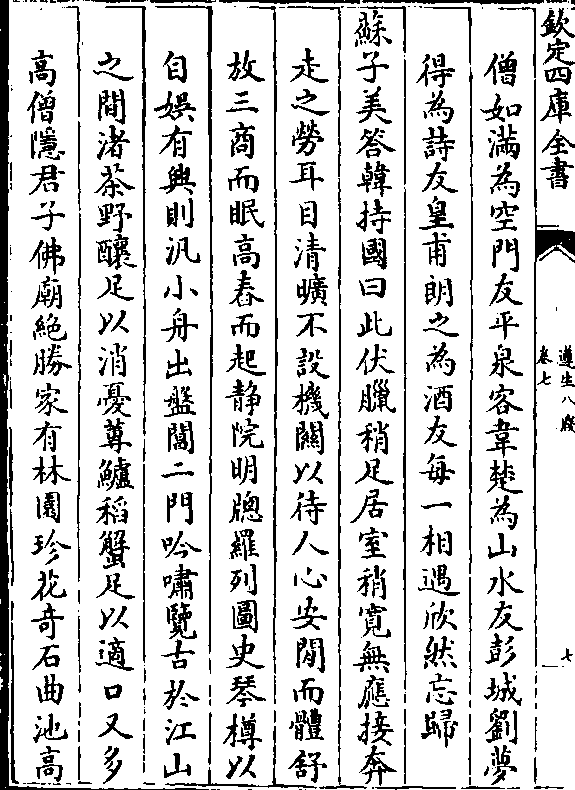 欽定四庫全書
遵生八牋
卷七
七
僧如滿為空門友平泉客韋楚為山水友彭城劉夢
得為詩友皇甫朗之為酒友每一相遇欣然忘歸
蘇子美答韓持國曰此伏臘稍足居室稍寬無應接奔
走之勞耳目清曠不設機關以待人心安閒而體舒
放三商而眠高舂而起静院明牕羅列圖史琴樽以
自娛有興則汎小舟出盤閶二門吟嘯覽古於江山
之間渚茶野釀足以消憂蓴鱸稻蟹足以適口又多
高僧隱君子佛廟絶勝家有林園珍花奇石曲池高